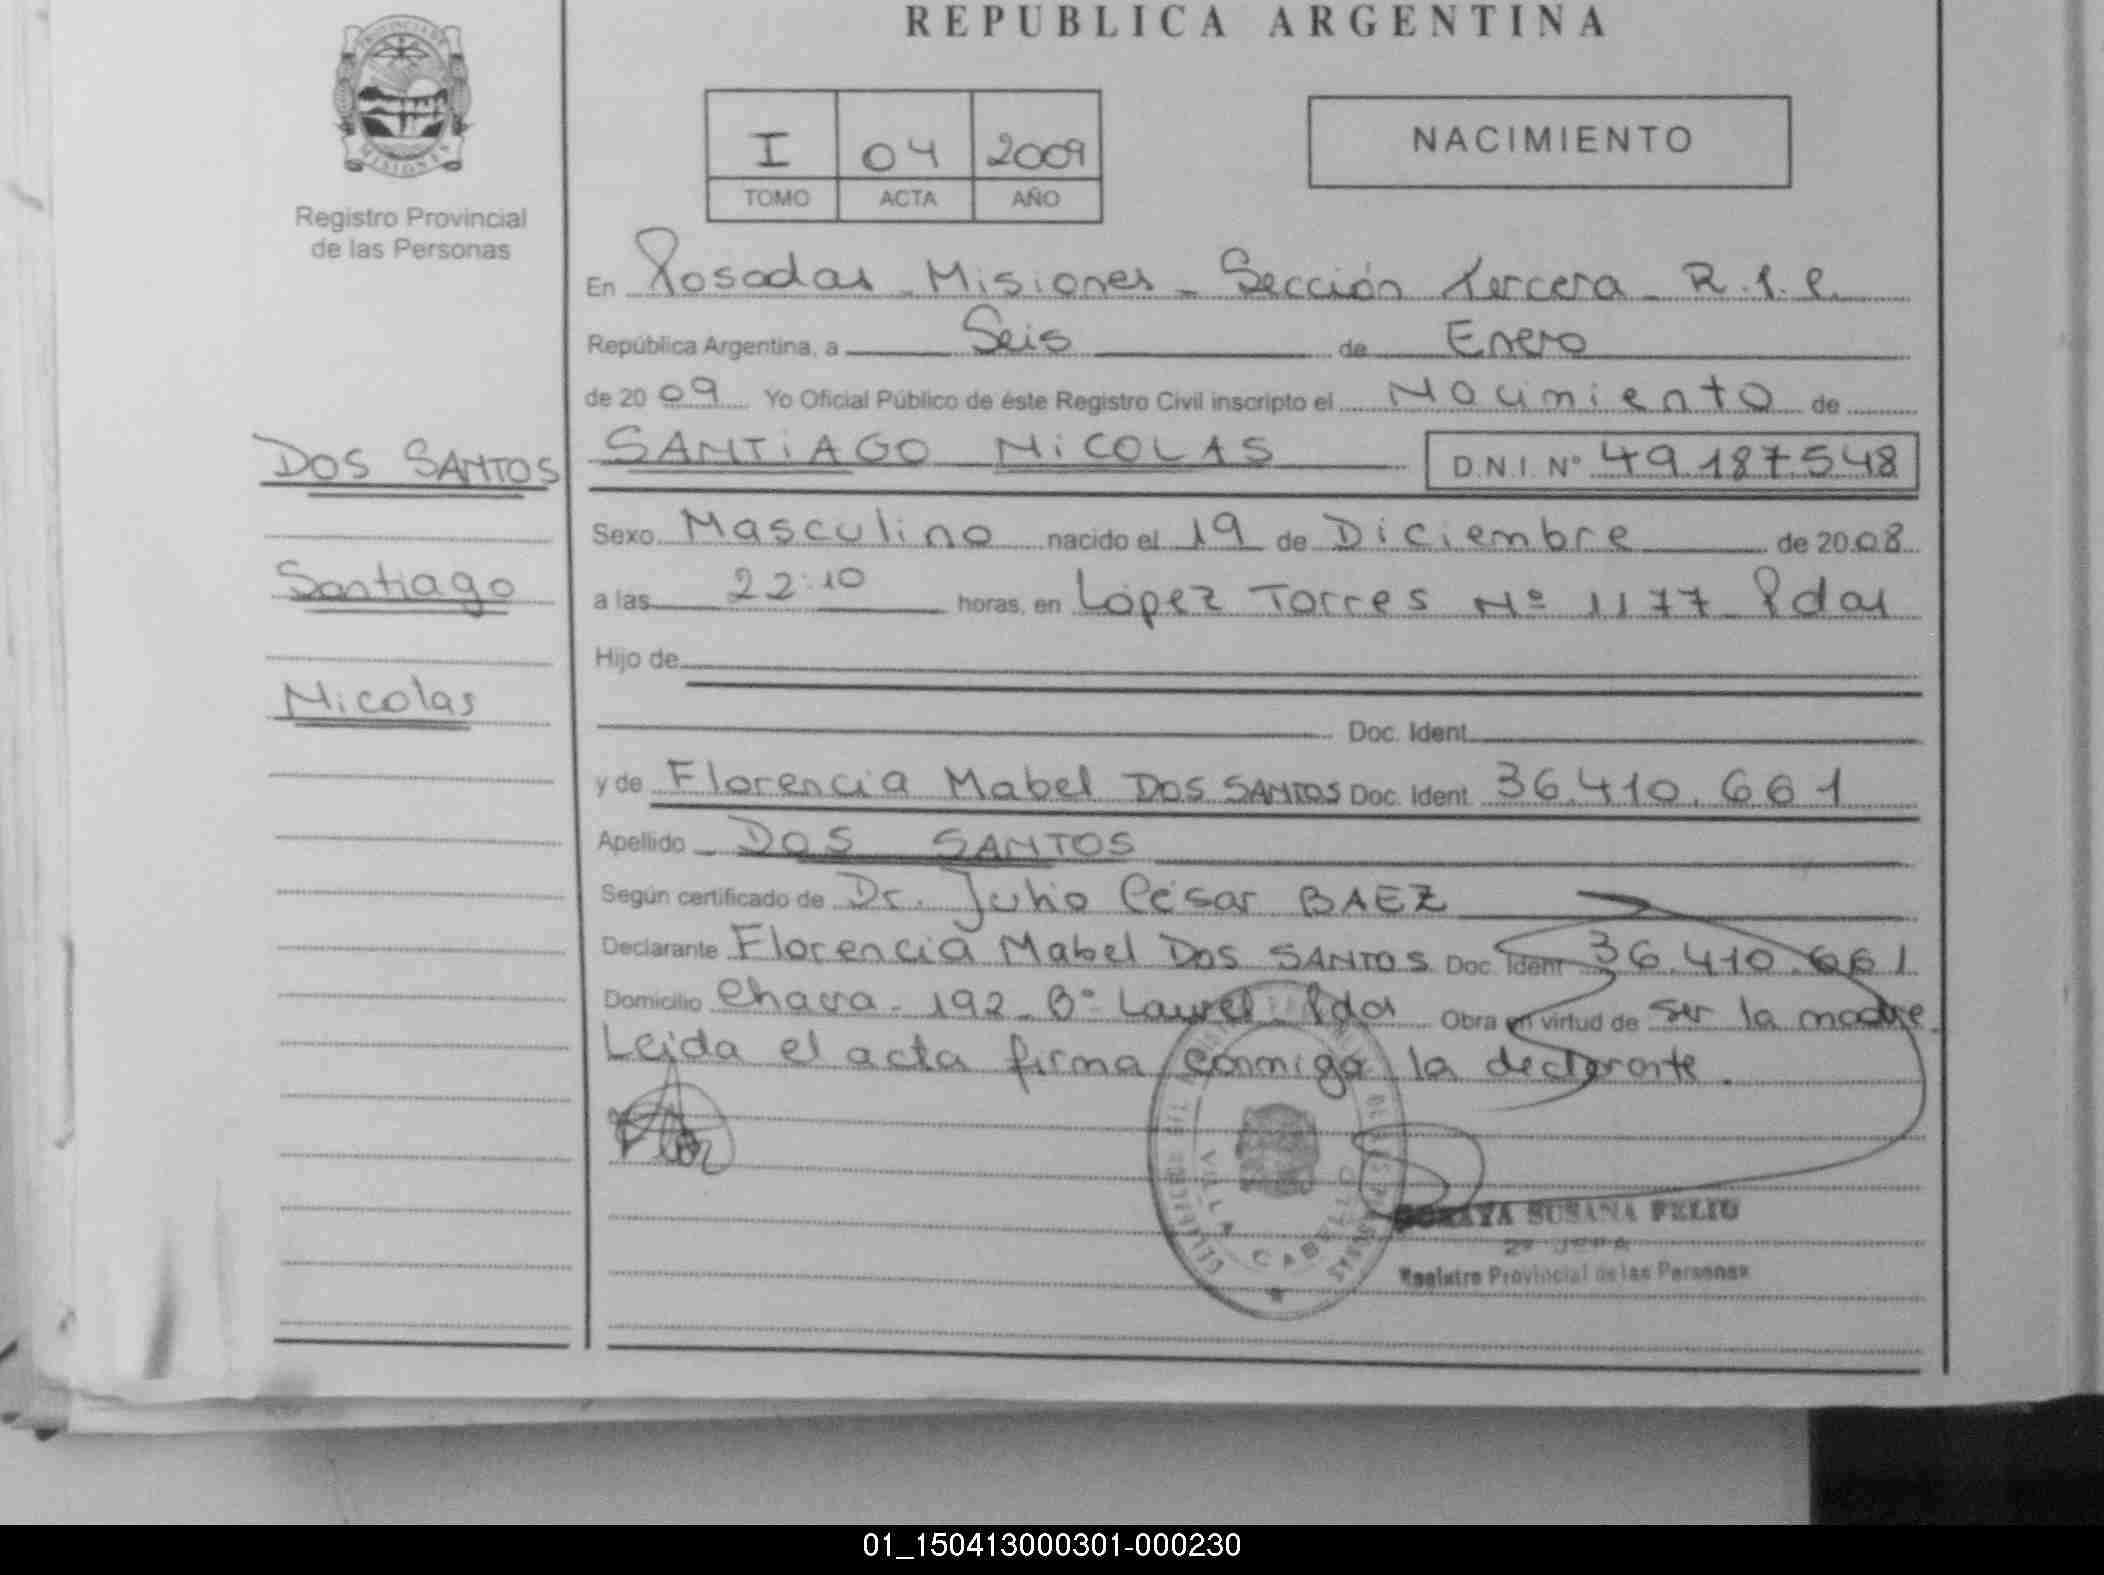 REPUBLICA ARGENTINA
PROVINCIA DE
MISIONES
Registro Provincial
de las Personas
I 04 2009
TOMO ACTA AÑO
NACIMIENTO
En Posadas - Misiones - Sección Tercera - R.P.P.
República Argentina, a Seis de Enero
de 2009 Yo Oficial Público de éste Registro Civil inscripto el Nacimiento de
DOS SANTOS
Santiago
Nicolas
SANTIAGO NICOLAS D.N.I. Nº 49.187.548
Sexo Masculino nacido el 19 de Diciembre de 2008
a las 22:10 horas, en López Torres Nº 1177 Pdas
Hijo de
Doc. Ident.
y de Florencia Mabel DOS SANTOS Doc. Ident. 36.410.661
Apellido DOS SANTOS
Según certificado de Dr. Julio César BAEZ
Declarante Florencia Mabel DOS SANTOS Doc. Ident 36.410.661
Domicilio Chacra - 192 - Bº Laurel - Pdas Obra en virtud de ser la madre.
Leida el acta firma conmigo la declarante.
Flor
VILLA CABELLO
SORAYA SUSANA FELIU
2º JEFA
Registro Provincial de las Personas
01_150413000301-000230